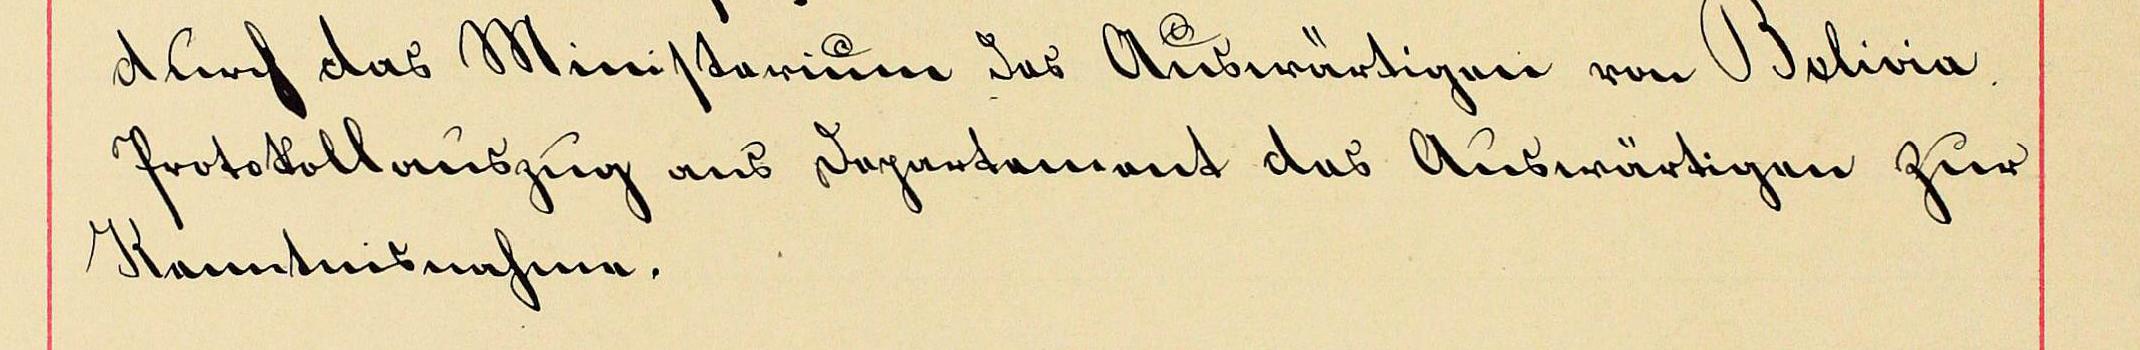 durch das Ministerium des Auswärtigen von Bolivia.
Protokollauszug ans Departement des Auswärtigen zur
Kenntnisnahme.